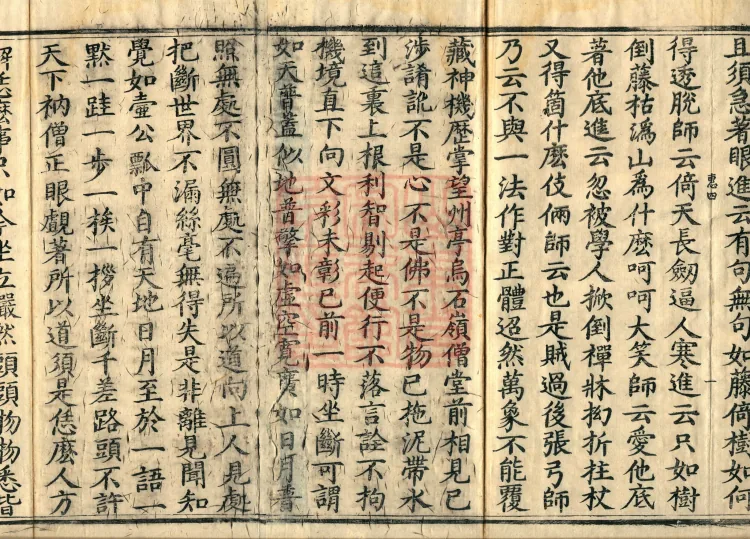 且須急著眼進云有句無句如藤倚樹如何
得透脫師云倚天長劒逼人寒進云只如樹
倒藤枯溈山爲什麽呵呵大笑師云愛他底
著他底進云忽被學人掀倒禪牀拗折拄杖
又得箇什麽伎倆師云也是賊過後張弓師
乃云不與一法作對正體迢然萬象不能覆
藏神機歷掌望州亭烏石嶺僧堂前相見已
涉誵訛不是心不是佛不是物已拖泥帶水
到這裏上根利智剔起便行不落言詮不拘
機境直下向文彩未彰已前一時坐斷可謂
如天普蓋似地普擎如虛空寬廣如日月普
照無處不圓無處不遍所以道向上人見處
把斷世界不漏絲毫無得失是非離見聞知
覺如壷公瓢中自有天地日月至於一語一
默一跬一步一挨一拶坐斷千差路頭不許
天下衲僧正眼覷著所以道須是恁麽人方
解恁麽事只如今坐立嚴然頭頭物物悉皆